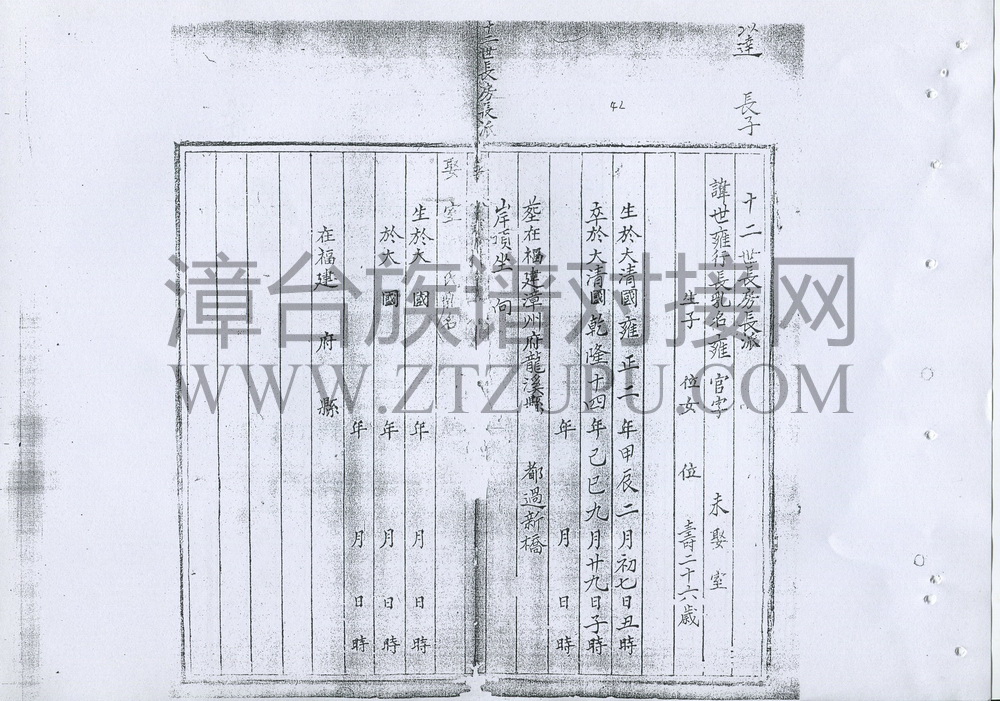 達
長子
42
十二世長房長派
諱世雍行長乳名雍 官字 未娶 室
生子 位女 位 壽二十六歲
生於大清國雍正二年甲辰二月初七日丑時
卒於大清國乾隆十四年己巳九月廿九日子時
年 月 日 時
塟在福建漳州府龍溪縣 都過新橋
岸頂坐 向
十二世長房長派
娶 室 名
生於大 國 年 月 日 時
於大 國 年 月 日 時
年 月 日 時
在福建 府 縣
漳台族谱对接网
WWW.ZTZUPU.COM